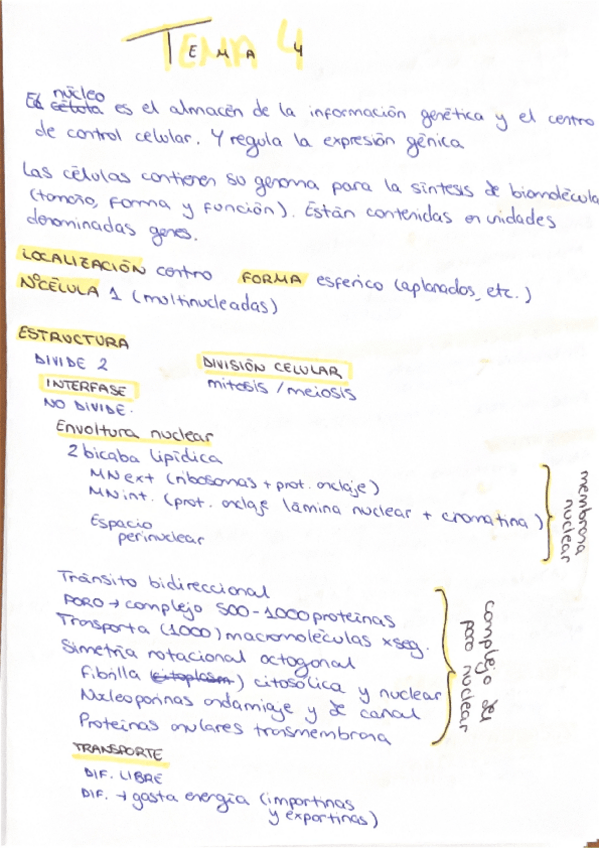 TEMA 4
El núcleo célula es el almacén de la información genética y el centro
de control celular. Y regula la expresión génica
Las células contienen su genoma para la síntesis de biomolécula
(tamaño, forma y función). Están contenidas en unidades
denominadas genes.
LOCALIZACIÓN centro FORMA esférico (aplanados, etc.)
NºCÉLULA 1 (multinucleadas)
ESTRUCTURA
DIVIDE 2 DIVISIÓN CELULAR
INTERFASE mitosis / meiosis
NO DIVIDE.
Envoltura nuclear
2 bicaba lipídica
MNext (ribosomas + prot. anclaje)
MNint. (prot. anclaje lámina nuclear + cromatina)
Espacio
perinuclear
membrana
nuclear
Tránsito bidireccional
PORO → complejo 500-1000 proteínas
Transporta (1000) macromoléculas x seg.
Simetría rotacional octogonal
Fibrilla (citoplasm) citosólica y nuclear
Nucleoporinas andamiaje y de canal
Proteínas anulares trasmembrana
complejo del
poro nuclear
TRANSPORTE
DIF. LIBRE
DIF. → gasta energía (importinas
y exportinas)